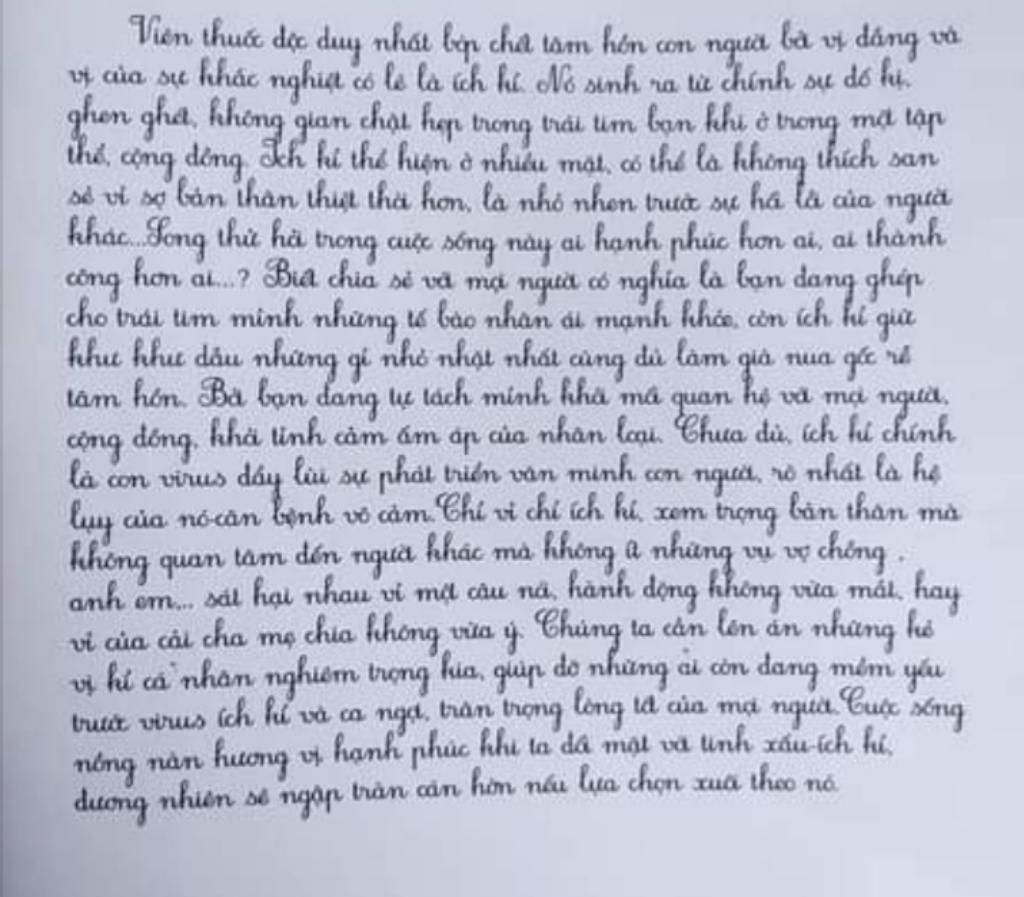 Viên thuốc độc duy nhất bóp chết tâm hồn con người bởi vị đắng và
vị của sự khắc nghiệt có lẽ là ích kỉ. Nó sinh ra từ chính sự đố kị,
ghen ghét, không gian chật hẹp trong trái tim bạn khi ở trong một tập
thể, cộng đồng. Ích kỉ thể hiện ở nhiều mặt, có thể là không thích san
sẻ vì sợ bản thân thiệt thòi hơn, là nhỏ nhen trước sự hả lả của người
khác...Song thử hỏi trong cuộc sống này ai hạnh phúc hơn ai, ai thành
công hơn ai...? Biết chia sẻ với mọi người có nghĩa là bạn đang ghép
cho trái tim mình những tế bào nhân ái mạnh khỏe, còn ích kỉ giữ
khư khư dẫu những gì nhỏ nhặt nhất cũng đủ làm già nua gốc rễ
tâm hồn. Bởi bạn đang tự tách mình khỏi mối quan hệ với mọi người,
cộng đồng, khỏi tình cảm ấm áp của nhân loại. Chưa đủ, ích kỉ chính
là con virus đẩy lùi sự phát triển văn minh con người, rõ nhất là hệ
lụy của nó-căn bệnh vô cảm. Chỉ vì chỉ ích kỉ, xem trọng bản thân mà
không quan tâm đến người khác mà không ít những vụ vợ chồng,
anh em,.. sát hại nhau vì một câu nói, hành động không vừa mắt, hay
vì của cải cha mẹ chia không vừa ý. Chúng ta cần lên án những kẻ
vị kỉ cá nhân nghiêm trọng kia, giúp đỡ những ai còn đang mềm yếu
trước virus ích kỉ và ca ngợi, trân trọng lòng tốt của mọi người. Cuộc sống
nồng nàn hương vị hạnh phúc khi ta đối mặt với tính xấu-ích kỉ,
đương nhiên sẽ ngập tràn cán hờn nếu lựa chọn xuôi theo nó.